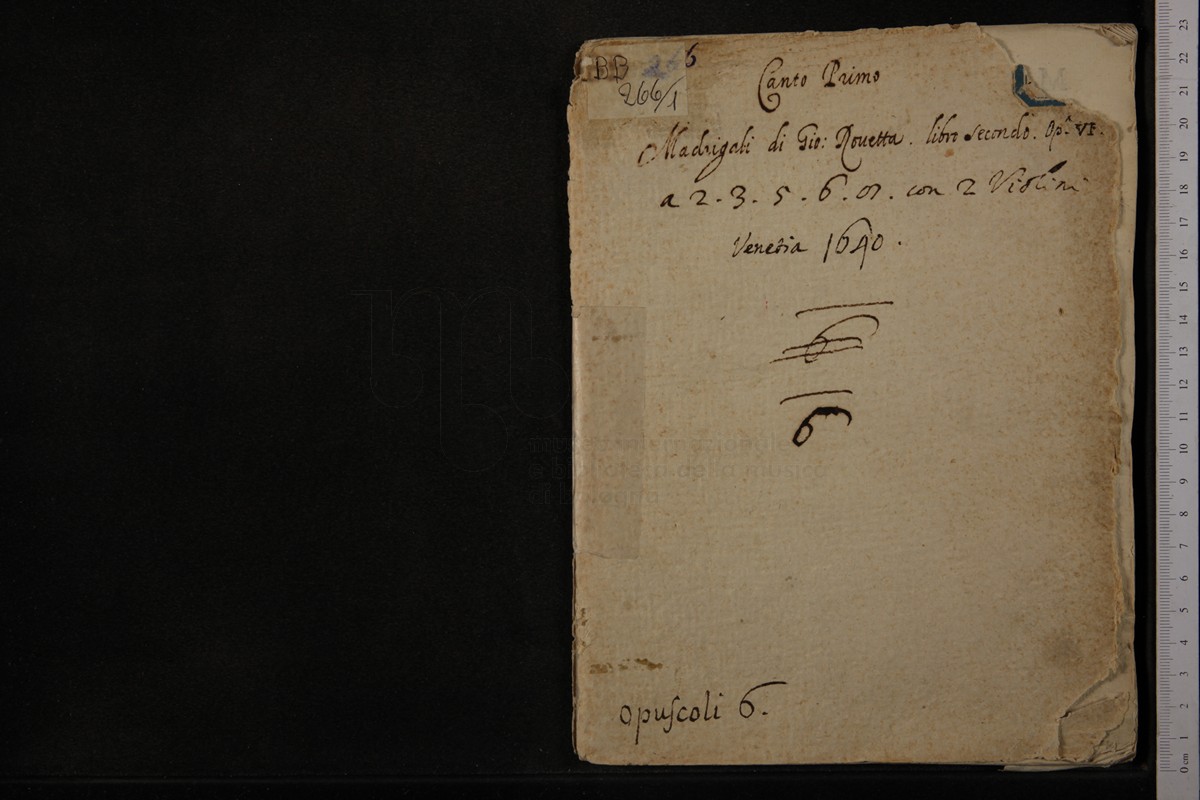 BB
266/1
6
Canto Primo
Madrigali di Gio: Rouetta. libro secondo. Opª. VI.
a 2. 3. 5. 6. 07. con 2 Violini
Venetia 1640.
6
6
opuscoli 6.
museo internazionale
e biblioteca della musica
di bologna
0 cm 1 2 3 4 5 6 7 8 9 10 11 12 13 14 15 16 17 18 19 20 21 22 23